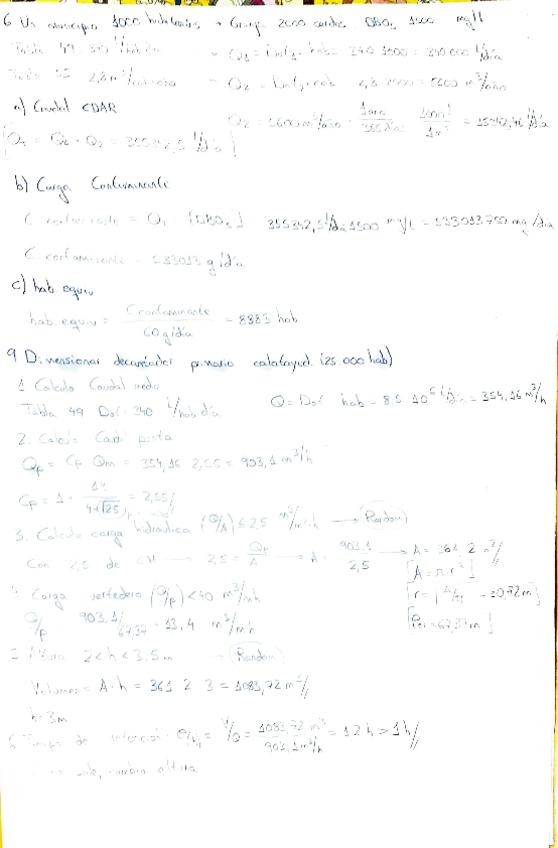 6 Un municipio 1000 habitantes + Granja 2000 cerdos DBO₅ 1500 mg/l
Tabla 49 340 l/hab día → Q₁ = Dot₁ · hab = 340 · 1000 = 340 000 l/día
Tabla 2,8 m³/ → Q₂ = Dot₂ · = 2,8 · 2000 = 5600 m³/año
a) Caudal EDAR
Q₂ = 5600 m³/año · 1 año/365 días · 1000 l/1 m³ = 15342,46 l/día
Q₁ + Q₂ = 355342,5 l/día
b) Carga Contaminante
C contaminante = Q · [DBO₅] 355342,5 l/día · 1500 mg/l = 533013750 mg/día
C. contaminante = 533013 g/día
c) hab. equiv
hab. equiv = C contaminante / 60 g/día = 8883 hab
9 Dimensionar decantador primario calatayud. (25.000 hab)
1. Calculo Caudal medio
Tabla 49 Dot: 340 l/hab día Q = Dot · hab = 8,5 · 10⁶ l/día = 354,16 m³/h
2. Calculo Caudal punta
Qp = Cp · Qm = 354,16 · 2,55 = 903,1 m³/h
Cp = 1 + 14/(4+√25) = 2,55
3. Calculo carga hidraulica (Q/A) ≤ 2,5 m³/m²h → Random
Con 2,5 de CH → 2,5 = Qp/A → A = 903,1/2,5 → A = 361,2 m²
[A = π·r²]
Carga vertedero (Q/p) < 40 m³/mh [r = √A/π = 10,72 m]
Q/p 903,1/67,37 = 13,4 m³/mh [P = 67,37 m]
Altura 2 < h < 3,5 m → Random
Volumen = A · h = 361,2 · 3 = 1083,72 m³
h = 3m
6 Tiempo de retención = V/Q = 1083,72 m³/903,1 m³/h = 1,2 h > 1 h
cambio altura